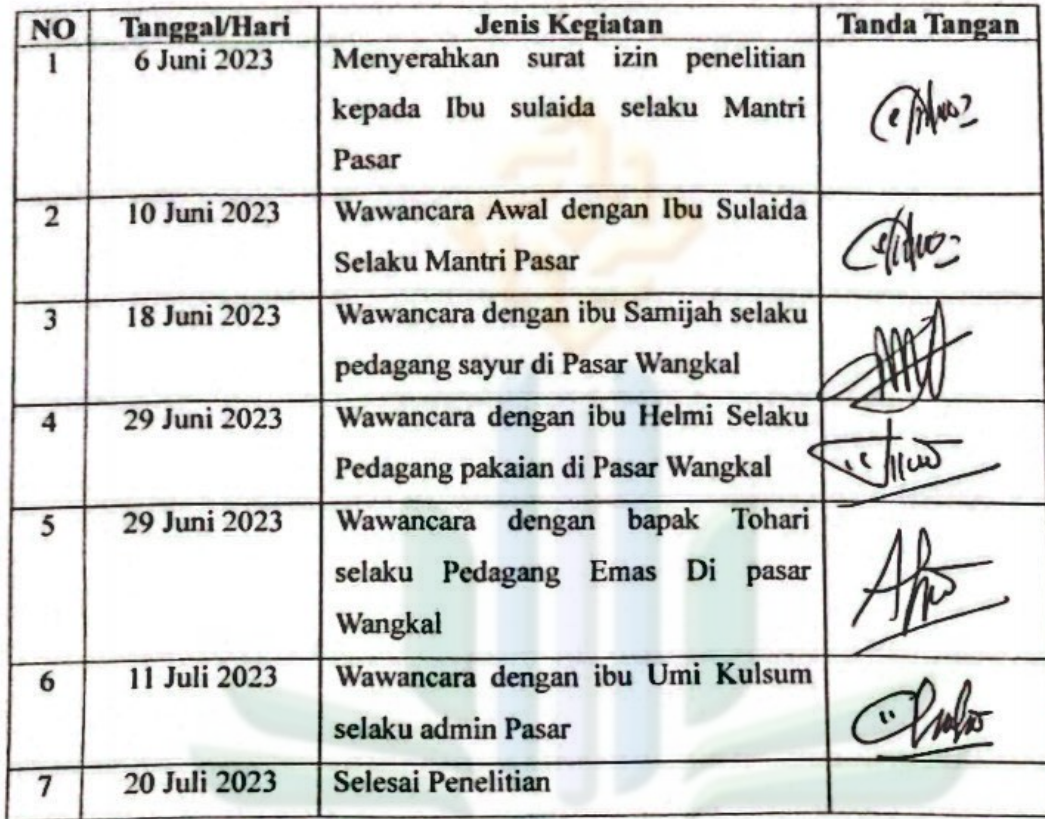 NO Tanggal/Hari Jenis Kegiatan Tanda Tangan
1 6 Juni 2023 Menyerahkan surat izin penelitian
kepada Ibu sulaida selaku Mantri
Pasar
2 10 Juni 2023 Wawancara Awal dengan Ibu Sulaida
Selaku Mantri Pasar
3 18 Juni 2023 Wawancara dengan ibu Samijah selaku
pedagang sayur di Pasar Wangkal
4 29 Juni 2023 Wawancara dengan ibu Helmi Selaku
Pedagang pakaian di Pasar Wangkal
5 29 Juni 2023 Wawancara dengan bapak Tohari
selaku Pedagang Emas Di pasar
Wangkal
6 11 Juli 2023 Wawancara dengan ibu Umi Kulsum
selaku admin Pasar
7 20 Juli 2023 Selesai Penelitian